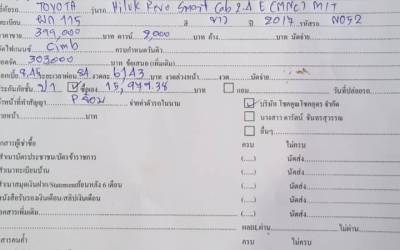 ยี่ห้อรถ TOYOTA รุ่นรถ Hilux Revo Smart Cab 2.4 E (MNC) MIT
ทะเบียน 115 สี ขาว ปี 2017 รหัสรถ N052
ราคาขาย 399,000 บาท ดาวน์ 9,000 บาท ค้าง บาท นัดจ่าย
จัดไฟแนนซ์ Cimb ครบกำหนดวันที่
ยอดจัด 303,000 บาท ข้อเสนอ (เพิ่มเติม)
ดอกเบี้ย 8.45 ระยะเวลาผ่อน 84 งวดละ 6,143 บาท งวดล่วงหน้า บาท นัดจ่าย
ประกันภัยชั้น ซื้อเอง 15,979.38 บาท แถม วันที่ปล่อยรถ
เจ้าหน้าที่ทำสัญญา จ่ายค่าตัวรถในนาม บริษัท โชคคูณโชคอุดร จำกัด
งวดหน้า บาท นางสาว ดารัตน์ จันทรสุวรรณ
อื่นๆ
เอกสารผู้เช่าซื้อ ครบ ไม่ครบ
สำเนาบัตรประชาชน/บัตรข้าราชการ (.....) (.....) นัดส่ง
สำเนาทะเบียนบ้าน (.....) (.....) นัดส่ง
สำเนาสมุดเงินฝาก/Statementเดือนหลัง 6 เดือน (.....) (.....) นัดส่ง
หนังสือรับรองเงินเดือน/สลิปเงินเดือน (.....) (.....) นัดส่ง
เอกสารเพิ่มเติม (.....) (.....) นัดส่ง
บาท ผลBLผ่าน ไม่ผ่าน
เอกสารคนค้ำ ครบ ไม่ครบ